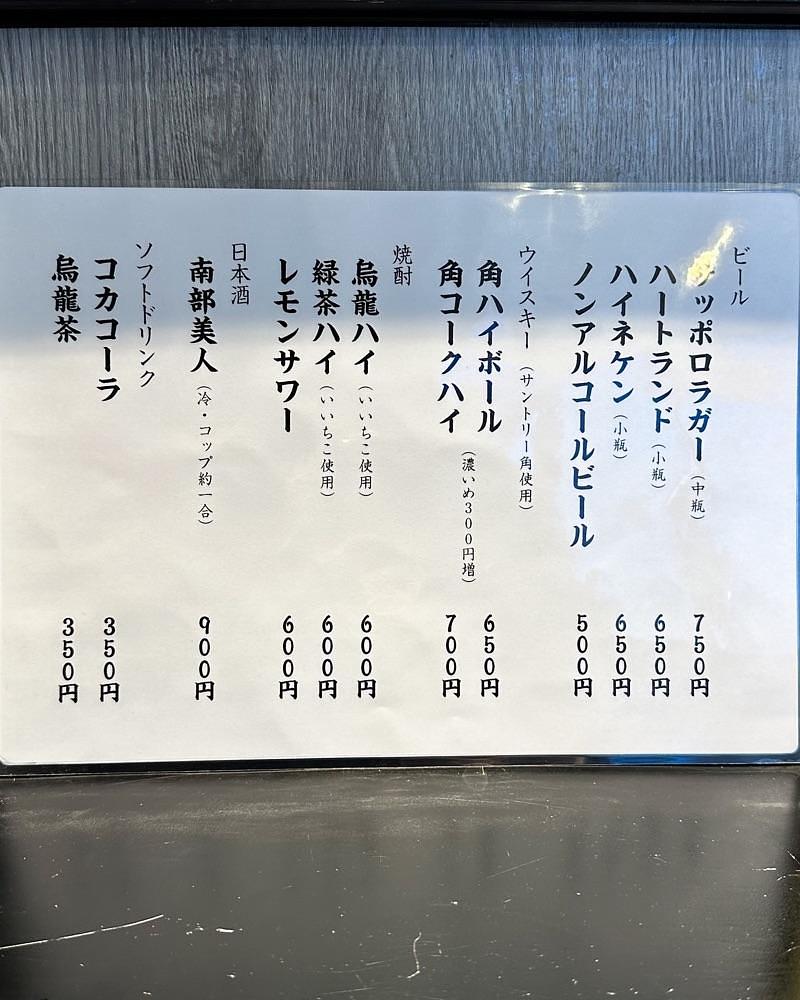 ビール
サッポロラガー（中瓶） 750円
ハートランド（小瓶） 650円
ハイネケン（小瓶） 650円
ノンアルコールビール 500円
ウイスキー（サントリー角使用）
角ハイボール 650円
（濃いめ300円増）
角コークハイ 700円
焼酎
烏龍ハイ（いいちこ使用） 600円
緑茶ハイ（いいちこ使用） 600円
レモンサワー 600円
日本酒
南部美人（冷・コップ約一合） 900円
ソフトドリンク
コカコーラ 350円
烏龍茶 350円